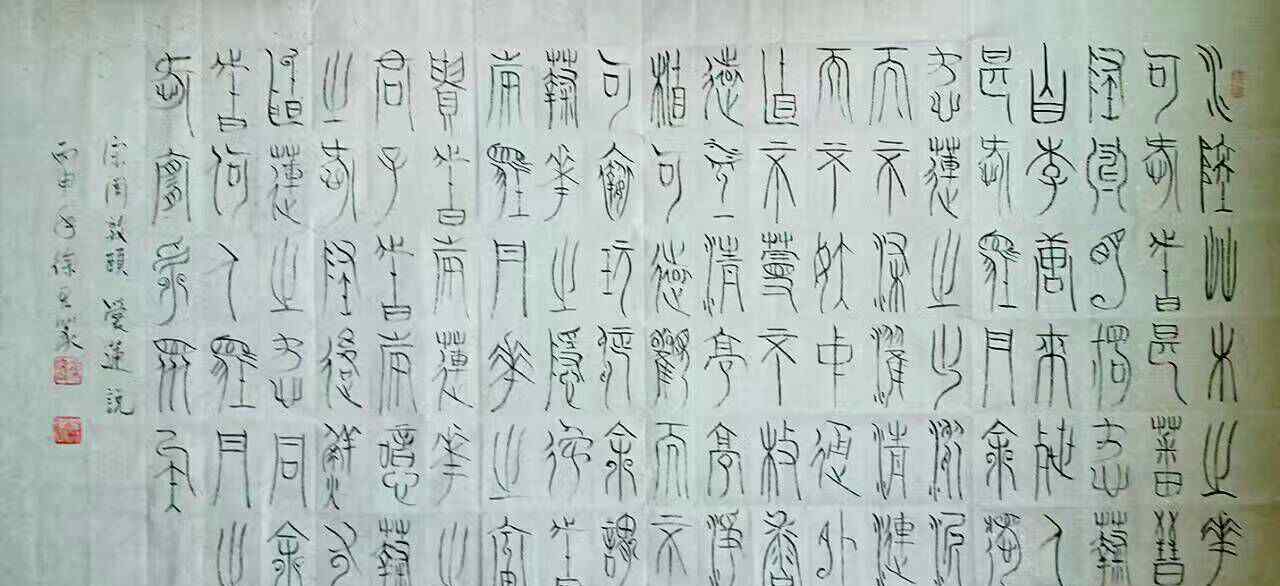 水陸艸木之華
可愛者甚蕃晉
陶淵明獨愛菊
自李唐來世人
甚愛牡丹余獨
愛蓮之出淤泥
而不染濯清漣
而不妖中通外
直不蔓不枝香
遠益清亭亭淨
植可遠觀而不
可褻玩焉余謂
菊華之隱逸者
也牡丹華之富
貴者也蓮華之
君子者也噫菊
之愛陶後鮮有
聞蓮之愛同余
者何人牡丹之
愛宜乎眾矣
宋周敦頤 愛蓮說
丙申 徐 篆